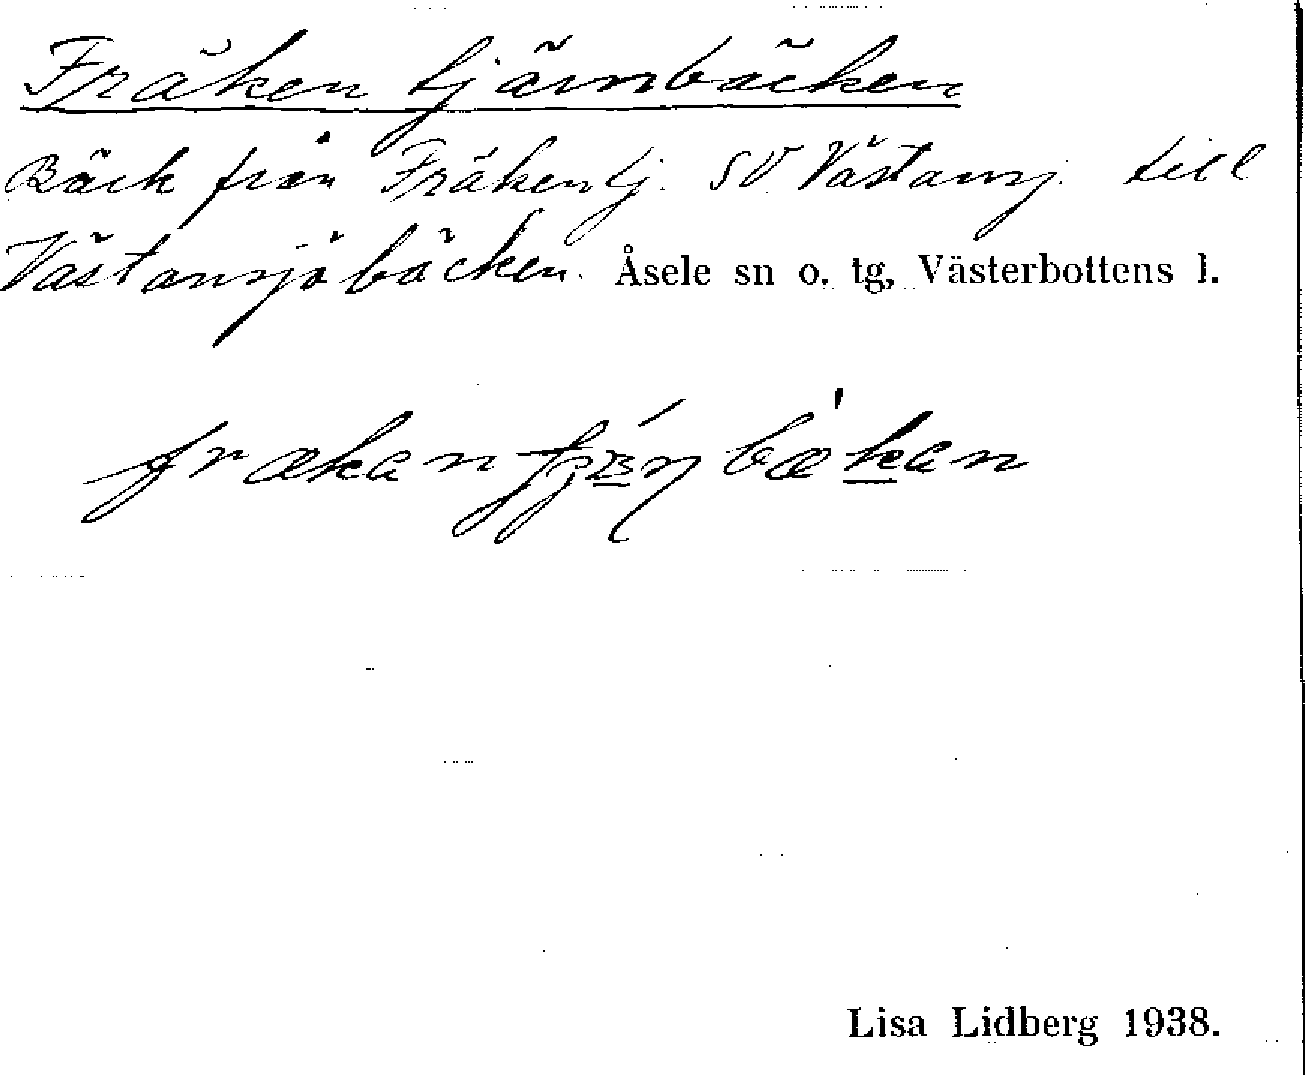 Fräken tjärnbäcken
Bäck från Fräkentj. SV. Västansj. till
Västansjöbäcken. Åsele sn o. tg, Västerbottens l.
Lisa Lidberg 1938.